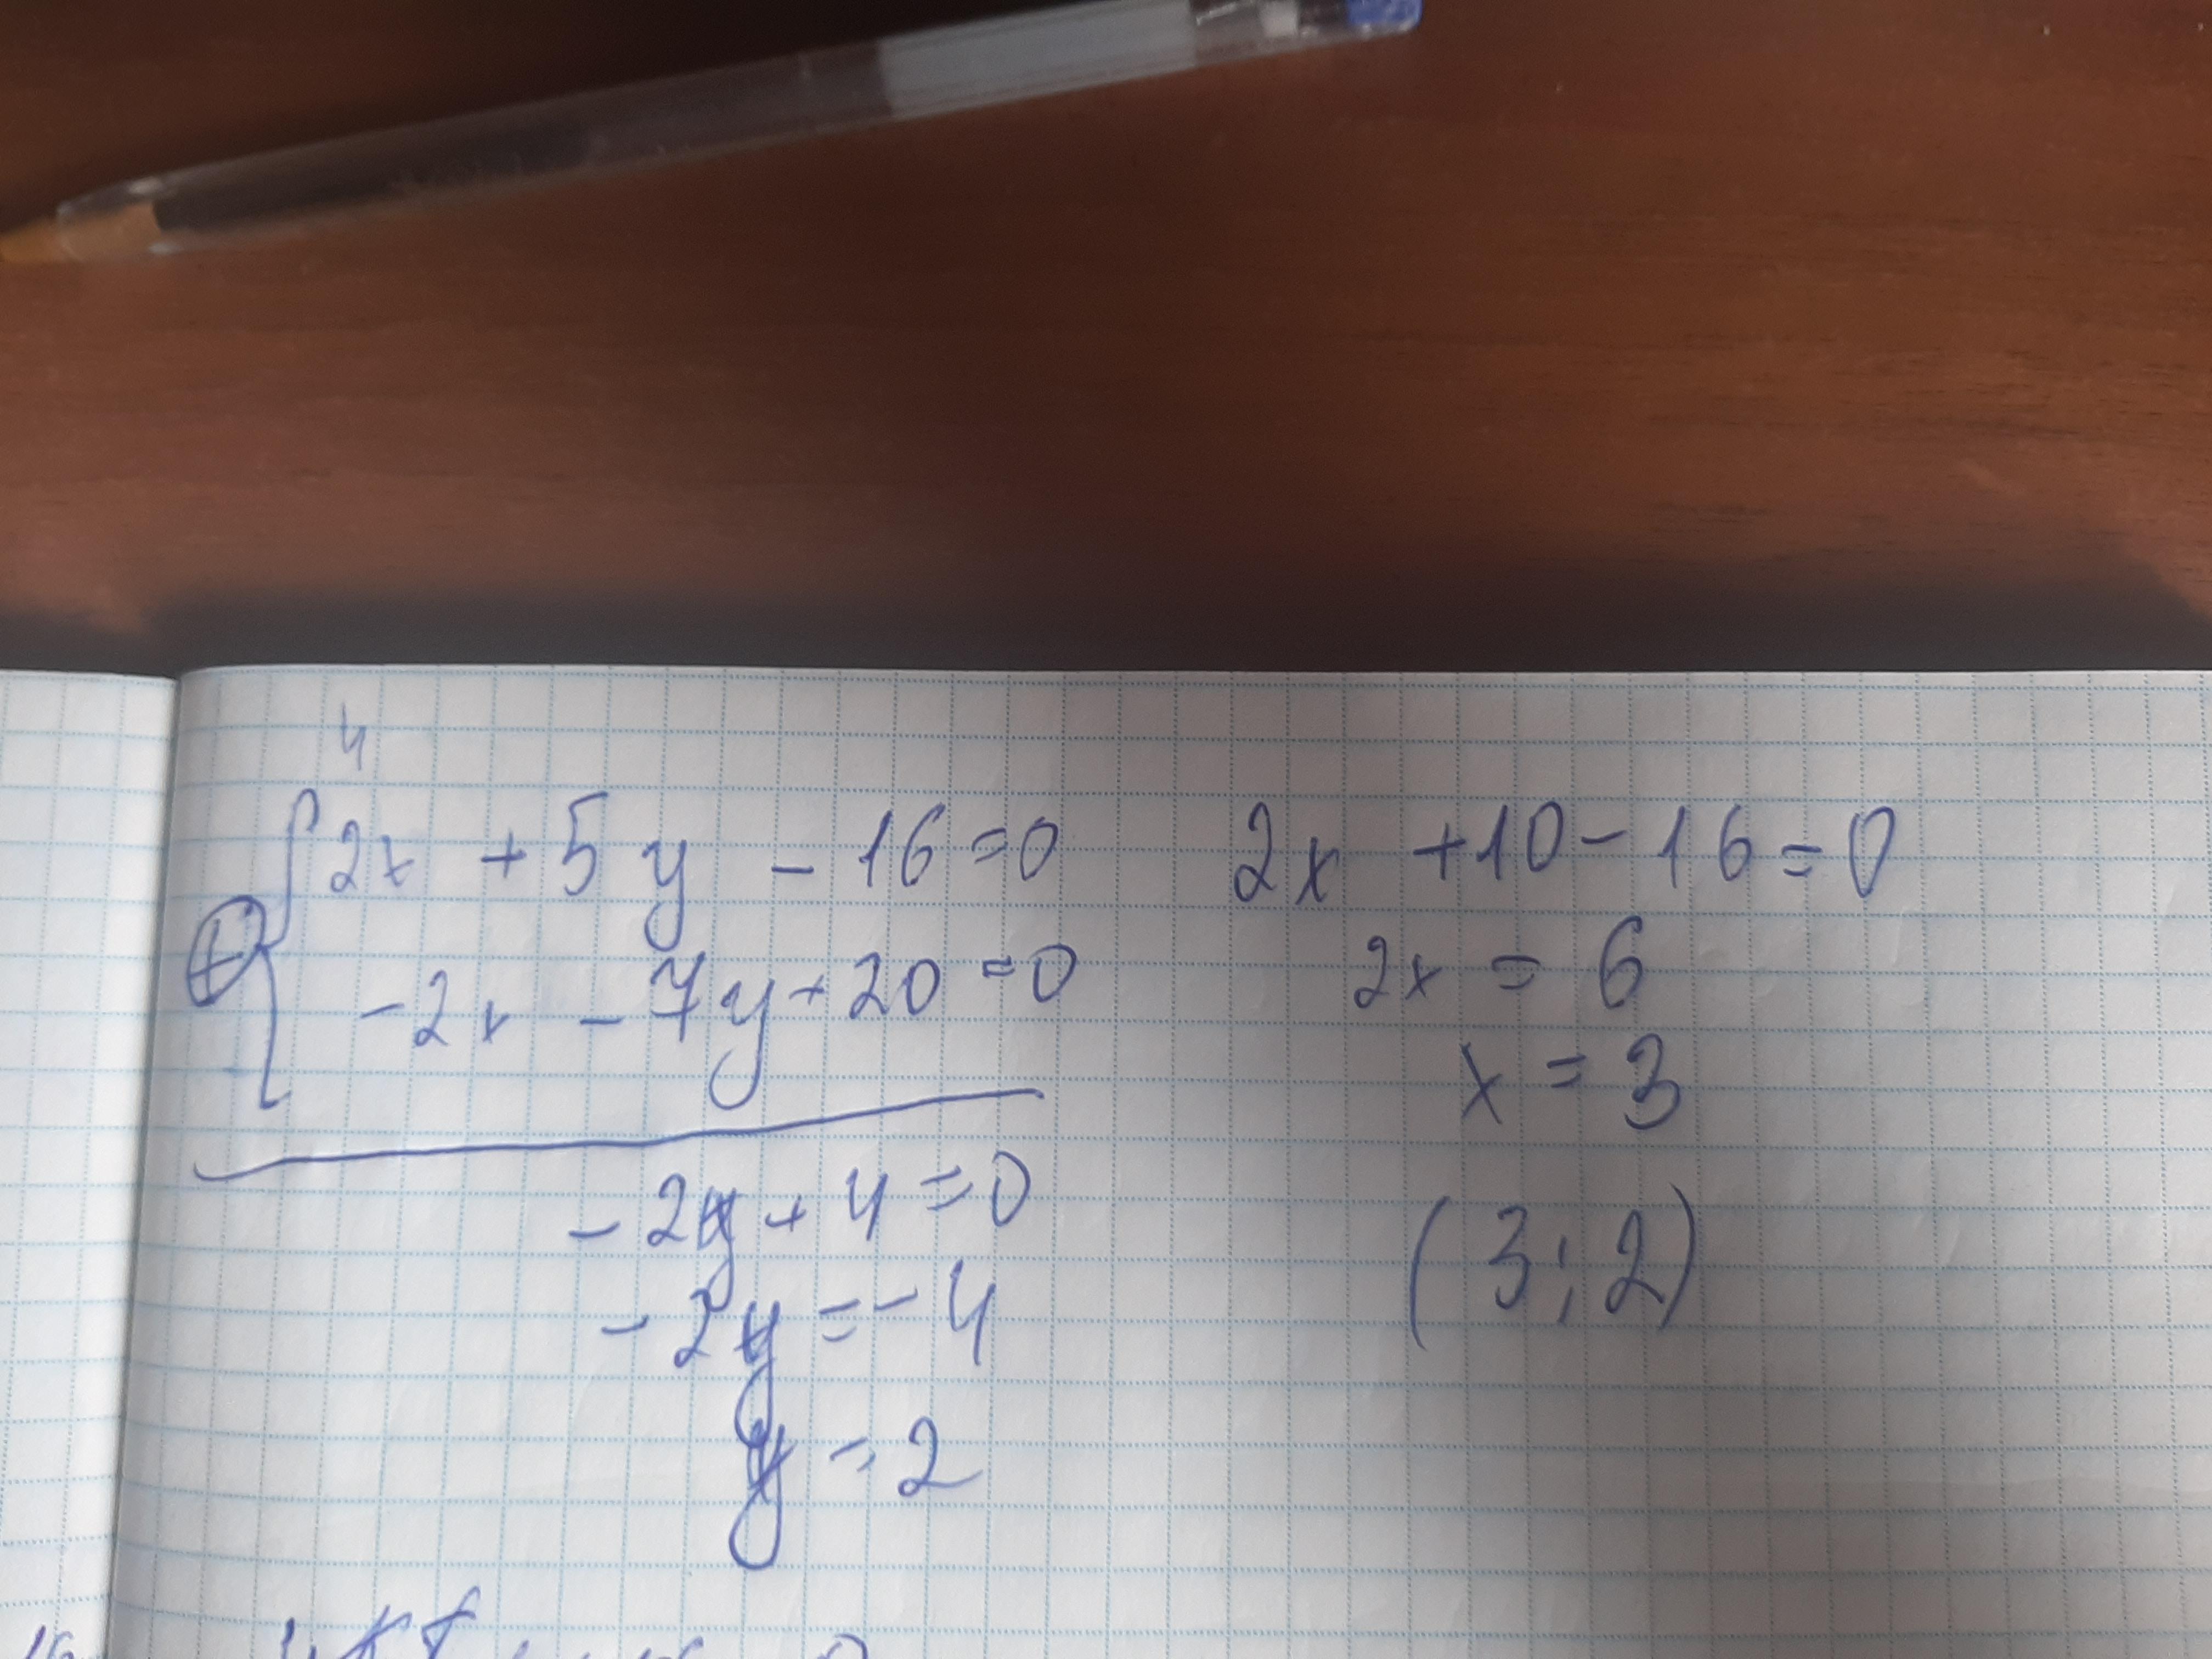 4
2x + 5y - 16 = 0
+
-2x - 7y + 20 = 0
-2y + 4 = 0
-2y = -4
y = 2
2x + 10 - 16 = 0
2x = 6
x = 3
(3; 2)